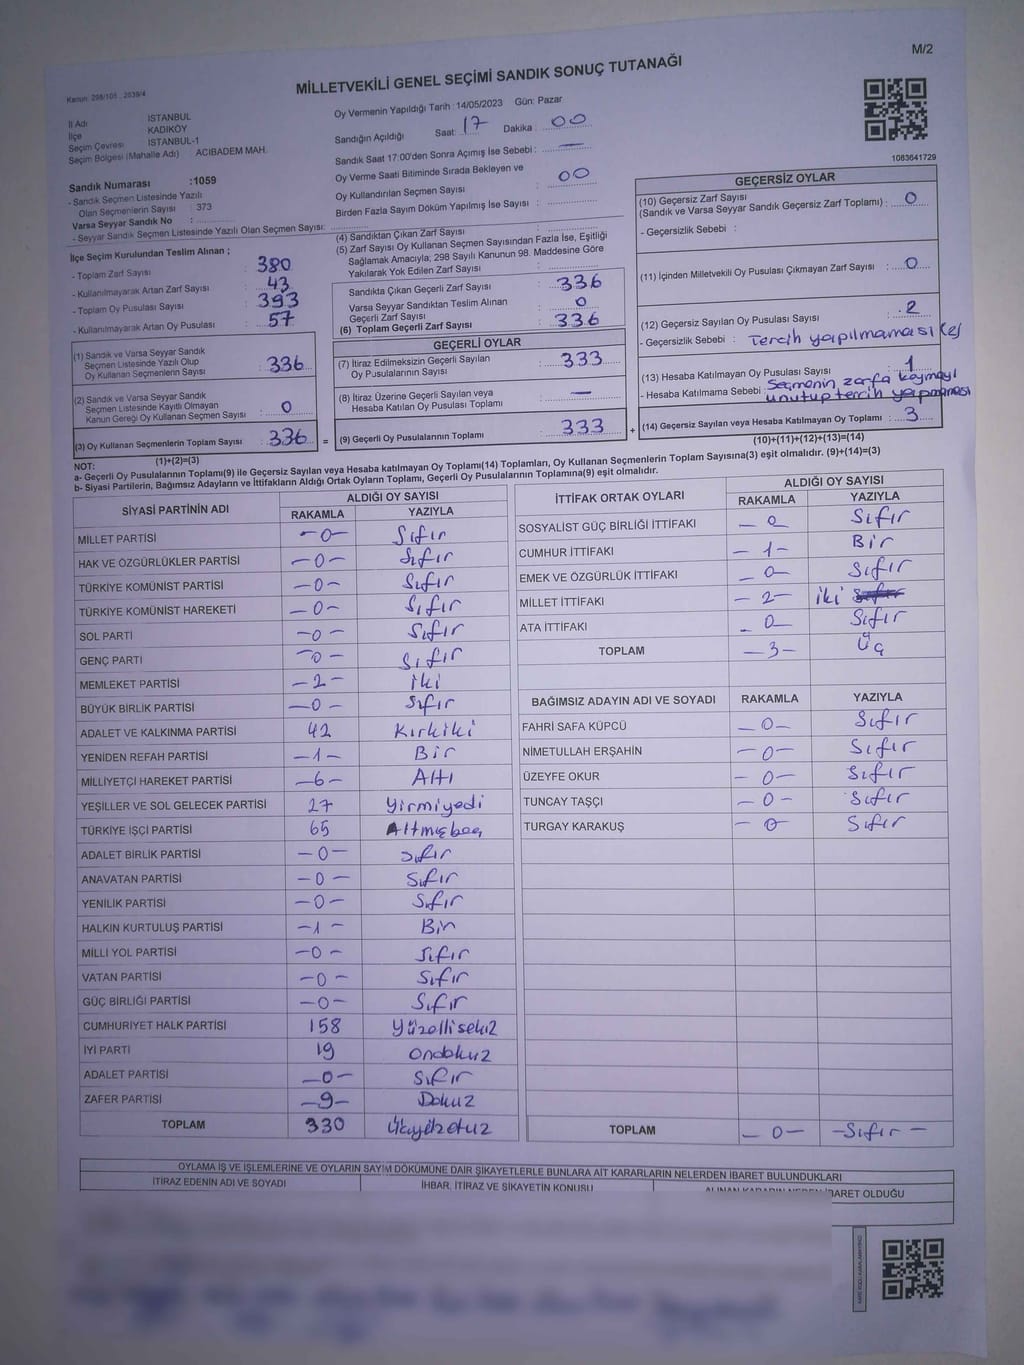 M/2
MİLLETVEKİLİ GENEL SEÇİMİ SANDIK SONUÇ TUTANAĞI
Kanun: 298/105 , 2839/4
İl Adı İSTANBUL
İlçe KADIKÖY
Seçim Çevresi İSTANBUL-1
Seçim Bölgesi (Mahalle Adı) ACIBADEM MAH.
Oy Vermenin Yapıldığı Tarih :14/05/2023 Gün: Pazar
Sandığın Açıldığı Saat: 17 Dakika : 00
Sandık Saat 17:00'den Sonra Açılmış İse Sebebi : —
Oy Verme Saati Bitiminde Sırada Bekleyen ve
Oy Kullandırılan Seçmen Sayısı : 00
Birden Fazla Sayım Döküm Yapılmış İse Sayısı :
1083641729
Sandık Numarası :1059
- Sandık Seçmen Listesinde Yazılı
Olan Seçmenlerin Sayısı : 373
Varsa Seyyar Sandık No :
- Seyyar Sandık Seçmen Listesinde Yazılı Olan Seçmen Sayısı:
İlçe Seçim Kurulundan Teslim Alınan ;
- Toplam Zarf Sayısı : 380
- Kullanılmayarak Artan Zarf Sayısı : 43
- Toplam Oy Pusulası Sayısı : 393
- Kullanılmayarak Artan Oy Pusulası : 57
(1) Sandık ve Varsa Seyyar Sandık
Seçmen Listesinde Yazılı Olup
Oy Kullanan Seçmenlerin Sayısı : 336
(2) Sandık ve Varsa Seyyar Sandık
Seçmen Listesinde Kayıtlı Olmayan
Kanun Gereği Oy Kullanan Seçmen Sayısı : 0
(3) Oy Kullanan Seçmenlerin Toplam Sayısı : 336 =
(1)+(2)=(3)
(4) Sandıktan Çıkan Zarf Sayısı :
(5) Zarf Sayısı Oy Kullanan Seçmen Sayısından Fazla İse, Eşitliği
Sağlamak Amacıyla; 298 Sayılı Kanunun 98. Maddesine Göre
Yakılarak Yok Edilen Zarf Sayısı :
Sandıkta Çıkan Geçerli Zarf Sayısı : 336
Varsa Seyyar Sandıktan Teslim Alınan
Geçerli Zarf Sayısı : 0
(6) Toplam Geçerli Zarf Sayısı : 336
GEÇERLİ OYLAR
(7) İtiraz Edilmeksizin Geçerli Sayılan
Oy Pusulalarının Sayısı : 333
(8) İtiraz Üzerine Geçerli Sayılan veya
Hesaba Katılan Oy Pusulası Toplamı : —
(9) Geçerli Oy Pusulalarının Toplamı : 333 +
GEÇERSİZ OYLAR
(10) Geçersiz Zarf Sayısı
(Sandık ve Varsa Seyyar Sandık Geçersiz Zarf Toplamı) : 0
- Geçersizlik Sebebi :
(11) İçinden Milletvekili Oy Pusulası Çıkmayan Zarf Sayısı : 0
(12) Geçersiz Sayılan Oy Pusulası Sayısı : 2
- Geçersizlik Sebebi : Tercih yapılmaması
(13) Hesaba Katılmayan Oy Pusulası Sayısı : 1
- Hesaba Katılmama Sebebi : Seçmenin zarfa koymayı
unutup tercih yapmaması
(14) Geçersiz Sayılan veya Hesaba Katılmayan Oy Toplamı : 3
(10)+(11)+(12)+(13)=(14)
NOT:
a- Geçerli Oy Pusulalarının Toplamı(9) ile Geçersiz Sayılan veya Hesaba katılmayan Oy Toplamı(14) Toplamları, Oy Kullanan Seçmenlerin Toplam Sayısına(3) eşit olmalıdır. (9)+(14)=(3)
b- Siyasi Partilerin, Bağımsız Adayların ve İttifakların Aldığı Ortak Oyların Toplamı, Geçerli Oy Pusulalarının Toplamına(9) eşit olmalıdır.
SİYASİ PARTİNİN ADI ALDIĞI OY SAYISI
RAKAMLA YAZIYLA
MİLLET PARTİSİ -0- Sıfır
HAK VE ÖZGÜRLÜKLER PARTİSİ -0- Sıfır
TÜRKİYE KOMÜNİST PARTİSİ -0- Sıfır
TÜRKİYE KOMÜNİST HAREKETİ -0- Sıfır
SOL PARTİ -0- Sıfır
GENÇ PARTİ -0- Sıfır
MEMLEKET PARTİSİ -2- iki
BÜYÜK BİRLİK PARTİSİ -0- Sıfır
ADALET VE KALKINMA PARTİSİ 42 Kırkiki
YENİDEN REFAH PARTİSİ -1- Bir
MİLLİYETÇİ HAREKET PARTİSİ -6- Altı
YEŞİLLER VE SOL GELECEK PARTİSİ 27 Yirmiyedi
TÜRKİYE İŞÇİ PARTİSİ 65 Altmışbeş
ADALET BİRLİK PARTİSİ -0- Sıfır
ANAVATAN PARTİSİ -0- Sıfır
YENİLİK PARTİSİ -0- Sıfır
HALKIN KURTULUŞ PARTİSİ -1- Bir
MİLLİ YOL PARTİSİ -0- Sıfır
VATAN PARTİSİ -0- Sıfır
GÜÇ BİRLİĞİ PARTİSİ -0- Sıfır
CUMHURİYET HALK PARTİSİ 158 Yüzellisekiz
İYİ PARTİ 19 Ondokuz
ADALET PARTİSİ -0- Sıfır
ZAFER PARTİSİ -9- Dokuz
TOPLAM 330
İTTİFAK ORTAK OYLARI ALDIĞI OY SAYISI
RAKAMLA YAZIYLA
SOSYALİST GÜÇ BİRLİĞİ İTTİFAKI - 0 Sıfır
CUMHUR İTTİFAKI - 1 - Bir
EMEK VE ÖZGÜRLÜK İTTİFAKI - 0- Sıfır
MİLLET İTTİFAKI - 2- iki
ATA İTTİFAKI - 0- Sıfır
TOPLAM -3- Üç
BAĞIMSIZ ADAYIN ADI VE SOYADI RAKAMLA YAZIYLA
FAHRİ SAFA KÜPCÜ -0- Sıfır
NİMETULLAH ERŞAHİN -0- Sıfır
ÜZEYFE OKUR -0- Sıfır
TUNCAY TAŞÇI -0- Sıfır
TURGAY KARAKUŞ -0- Sıfır
TOPLAM -0- -Sıfır-
OYLAMA İŞ VE İŞLEMLERİNE VE OYLARIN SAYIM DÖKÜMÜNE DAİR ŞİKAYETLERLE BUNLARA AİT KARARLARIN NELERDEN İBARET BULUNDUKLARI
İTİRAZ EDENİN ADI VE SOYADI İHBAR, İTİRAZ VE ŞİKAYETİN KONUSU ALINAN KARARIN NEDEN İBARET OLDUĞU